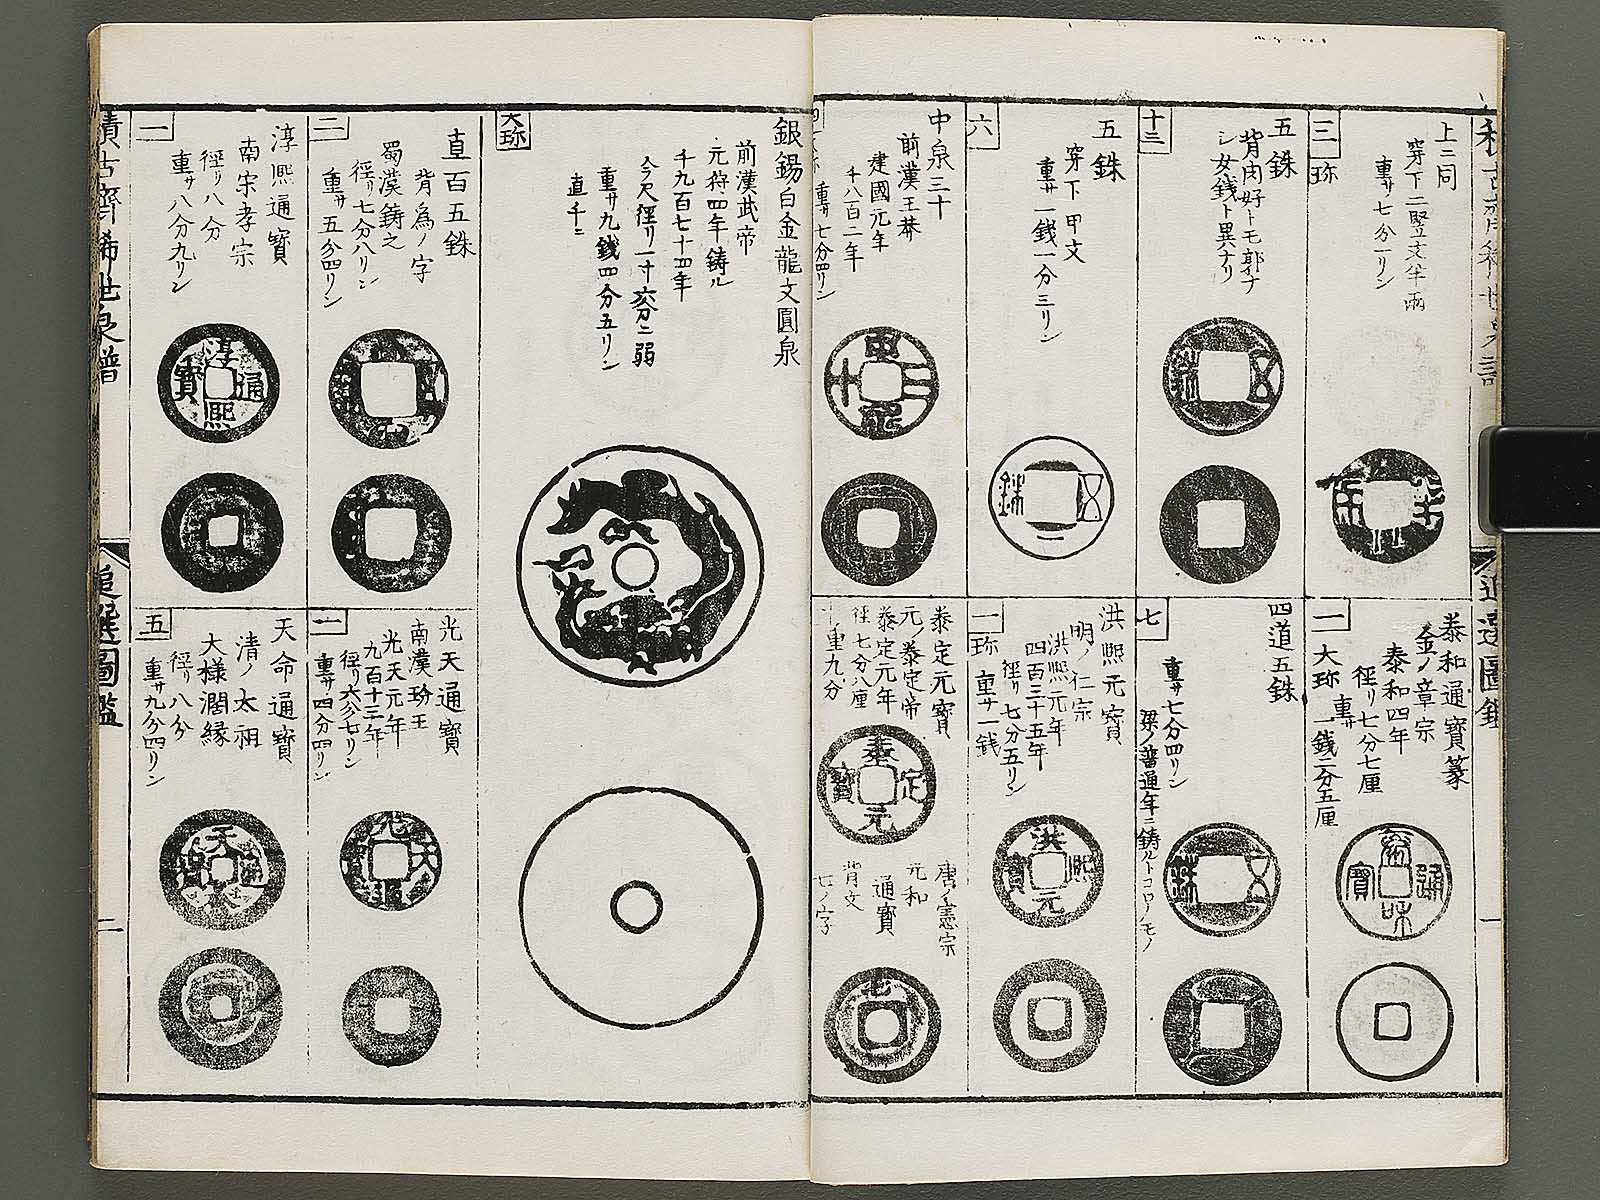 上ニ同
穿下二竪文半兩
重サ七分一リン
三
珎
五銖
背肉好トモ郭ナ
シ女銭ト異ナリ
十三
五銖
穿下甲文
重サ一銭一分三リン
六
中泉三十
前漢王莽
建國元年
千八百二年
重サ七分四リン
泰和通寳篆
金ノ章宗
泰和四年
徑リ七分七厘
重サ一銭二分五厘
大珎
二
四道五銖
重サ七分四リン
梁ノ普通年ニ鋳ルトコロノモノ
七
洪熙元寳
明ノ仁宗
洪熙元年
四百三十五年
徑リ七分五リン
重サ一銭
一
珎
泰定元寳
元ノ泰定帝
泰定元年
徑七分八厘
重九分
唐ノ憲宗
元和
通寳
背文
七ノ字
銀錫白金龍文圓泉
前漢武帝
元狩四年鋳ル
千九百七十四年
今尺徑リ一寸六分ニ弱
重サ九銭四分五リン
直千ニ
大珎
直百五銖
背為ノ字
蜀漢鋳之
徑リ七分八リン
重サ五分四リン
二
淳熙通寳
南宋孝宗
徑リ八分
重サ八分九リン
一
光天通寳
南漢玢王
光天元年
九百十三年
徑リ六分七リン
重サ四分四リン
一
天命通寳
清ノ太祖
大様濶縁
徑リ八分
重サ九分四リン
五
積古齋稀世泉譜
追選圖鑑
二